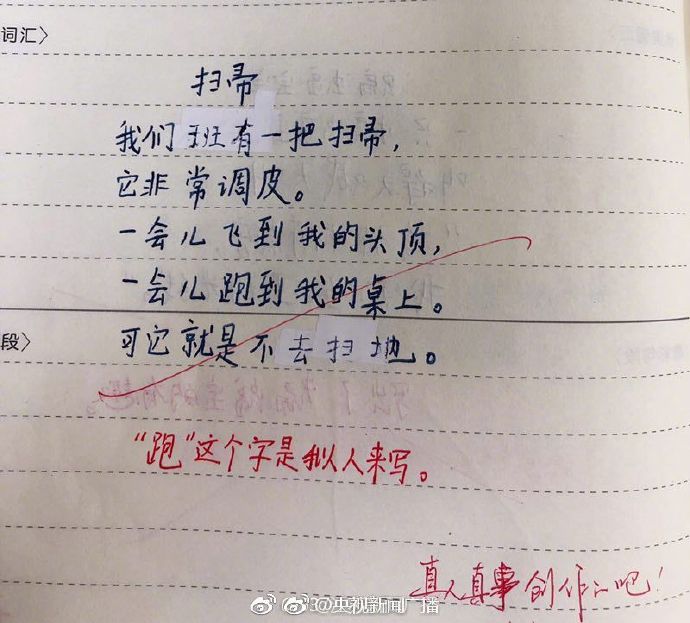 词汇〉
扫帚
我们班有一把扫帚,
它非常调皮。
一会儿飞到我的头顶,
一会儿跑到我的桌上。
段〉
可它就是不去扫地。
“跑”这个字是拟人来写。
真人真事创作的吧!
@央视新闻广播